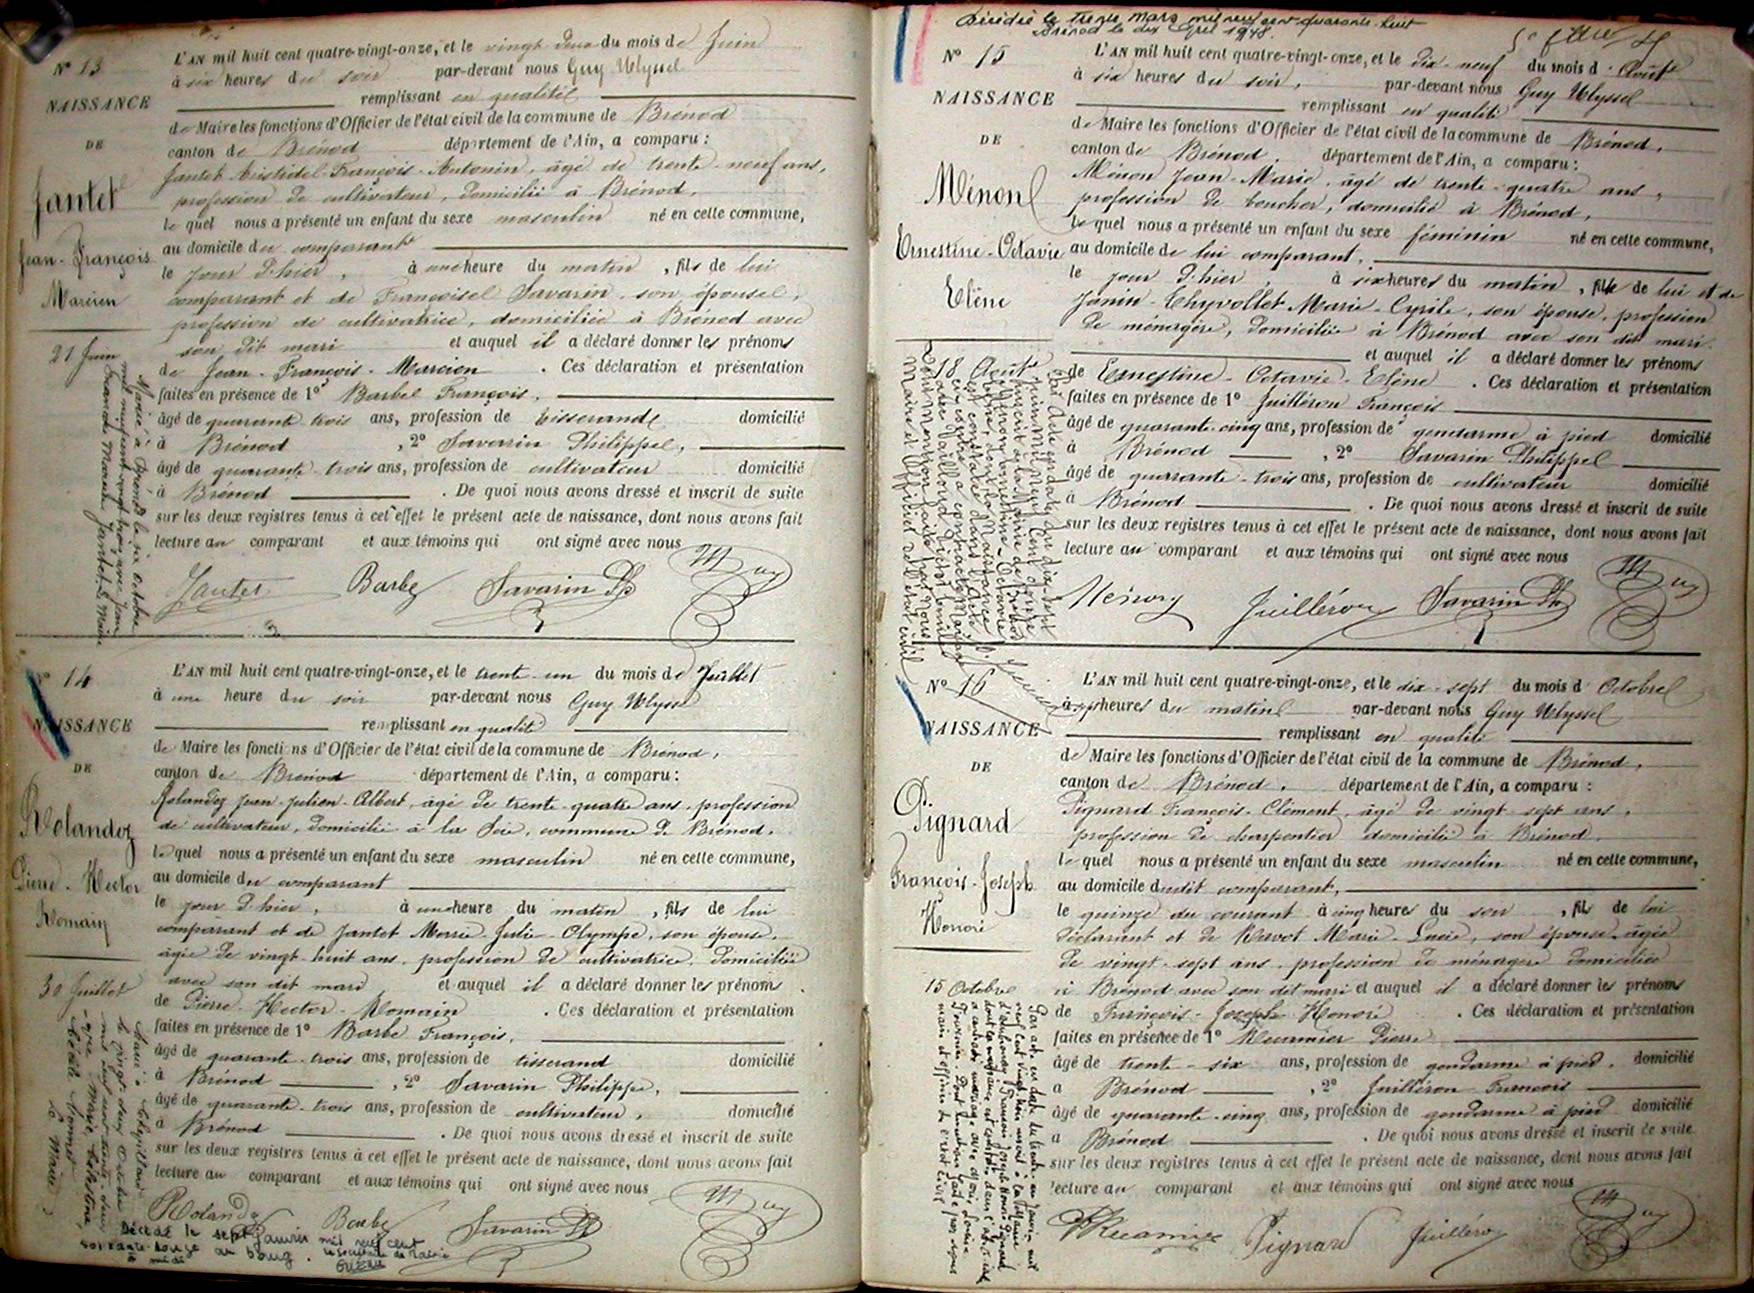 N° 13
NAISSANCE
DE
Jantet
Jean-François
Marcien
21 Juin
L'AN mil huit cent quatre-vingt-onze, et le vingt deux du mois de Juin
à six heures du soir par-devant nous Guy Ulysse
remplissant en qualité
de Maire les fonctions d'Officier de l'état civil de la commune de Brénod
canton de Brénod département de l'Ain, a comparu :
Jantet Aristide-François-Antonin, âgé de trente-neuf ans,
profession de cultivateur, domicilié à Brénod,
lequel nous a présenté un enfant du sexe masculin né en cette commune,
au domicile du comparant
le jour d'hier, à une heure du matin, fils de lui
comparant et de Françoise Savarin, son épouse,
profession de cultivatrice, domiciliée à Brénod avec
son dit mari et auquel il a déclaré donner les prénoms
de Jean-François-Marcien. Ces déclaration et présentation
faites en présence de 1° Barbe François,
âgé de quarante trois ans, profession de tisserand domicilié
à Brénod, 2° Savarin Philippe,
âgé de quarante-trois ans, profession de cultivateur domicilié
à Brénod. De quoi nous avons dressé et inscrit de suite
sur les deux registres tenus à cet effet le présent acte de naissance, dont nous avons fait
lecture au comparant et aux témoins qui ont signé avec nous
Jantet Barbe Savarin Ph Guy
Marié à Brénod le six Octobre
mil neuf cent vingt trois avec
Jantet Le Maire
N° 14
NAISSANCE
DE
Rolandez
Pierre-Hector
Romain
30 Juillet
L'AN mil huit cent quatre-vingt-onze, et le trente-un du mois de Juillet
à une heure du soir par-devant nous Guy Ulysse
remplissant en qualité
de Maire les fonctions d'Officier de l'état civil de la commune de Brénod,
canton de Brénod département de l'Ain, a comparu :
Rolandez Jean-Julien-Albert, âgé de trente-quatre ans, profession
de cultivateur, domicilié à la Scie, commune de Brénod,
lequel nous a présenté un enfant du sexe masculin né en cette commune,
au domicile du comparant
le jour d'hier, à une heure du matin, fils de lui
comparant et de Jantet Marie-Julie-Olympe, son épouse,
âgée de vingt-huit ans, profession de cultivatrice, domiciliée
avec son dit mari et auquel il a déclaré donner les prénoms
de Pierre-Hector-Romain. Ces déclaration et présentation
faites en présence de 1° Barbe François,
âgé de quarante-trois ans, profession de tisserand domicilié
à Brénod, 2° Savarin Philippe,
âgé de quarante-trois ans, profession de cultivateur, domicilié
à Brénod. De quoi nous avons dressé et inscrit de suite
sur les deux registres tenus à cet effet le présent acte de naissance, dont nous avons fait
lecture au comparant et aux témoins qui ont signé avec nous
Rolandez Barbe Savarin Ph Guy
Marié à
le vingt-deux Octobre
avec Marie
le Maire
Décédé le sept janvier mil neuf cent
soixante-douze au bourg. le secrétaire de Mairie
Décédée le trente Mars mil neuf cent quarante-huit
Brénod le dix Avril 1948.
N° 15
NAISSANCE
DE
Ménon
Ernestine-Octavie
Elène
18 Août
L'AN mil huit cent quatre-vingt-onze, et le dix-neuf du mois d'Août
à six heures du soir, par-devant nous Guy Ulysse
remplissant en qualité
de Maire les fonctions d'Officier de l'état civil de la commune de Brénod,
canton de Brénod, département de l'Ain, a comparu :
Ménon Jean-Marie, âgé de trente-quatre ans,
profession de boucher, domicilié à Brénod,
lequel nous a présenté un enfant du sexe féminin né en cette commune,
au domicile de lui comparant,
le jour d'hier à six heures du matin, fille de lui et de
Janin-Thyvollet Marie-Cyrile, son épouse, profession
de ménagère, domiciliée à Brénod avec son dit mari
et auquel il a déclaré donner les prénoms
de Ernestine-Octavie-Elène. Ces déclaration et présentation
faites en présence de 1° Juilléron François
âgé de quarante-cinq ans, profession de gendarme à pied domicilié
à Brénod, 2° Savarin Philippe
âgé de quarante-trois ans, profession de cultivateur domicilié
à Brénod. De quoi nous avons dressé et inscrit de suite
sur les deux registres tenus à cet effet le présent acte de naissance, dont nous avons fait
lecture au comparant et aux témoins qui ont signé avec nous
Juilléron Savarin Ph Guy
N° 16
NAISSANCE
DE
Pignard
François-Joseph
Honoré
15 Octobre
L'AN mil huit cent quatre-vingt-onze, et le dix-sept du mois d'Octobre
à sept heures du matin par-devant nous Guy Ulysse
remplissant en qualité
de Maire les fonctions d'Officier de l'état civil de la commune de Brénod,
canton de Brénod, département de l'Ain, a comparu :
Pignard François-Clément, âgé de vingt sept ans,
profession de charpentier domicilié à Brénod,
lequel nous a présenté un enfant du sexe masculin né en cette commune,
au domicile dudit comparant,
le quinze du courant à cinq heures du soir, fils de lui
déclarant et de Ravot Marie-Lucie, son épouse, âgée
de vingt-sept ans, profession de ménagère domiciliée
à Brénod avec son dit mari et auquel il a déclaré donner les prénoms
de François-Joseph Honoré. Ces déclaration et présentation
faites en présence de 1° Pierre
âgé de trente-six ans, profession de gendarme à pied, domicilié
à Brénod, 2° Juilléron François
âgé de quarante-cinq ans, profession de gendarme à pied domicilié
à Brénod. De quoi nous avons dressé et inscrit de suite
sur les deux registres tenus à cet effet le présent acte de naissance, dont nous avons fait
lecture au comparant et aux témoins qui ont signé avec nous
Pignard Juilléron Guy